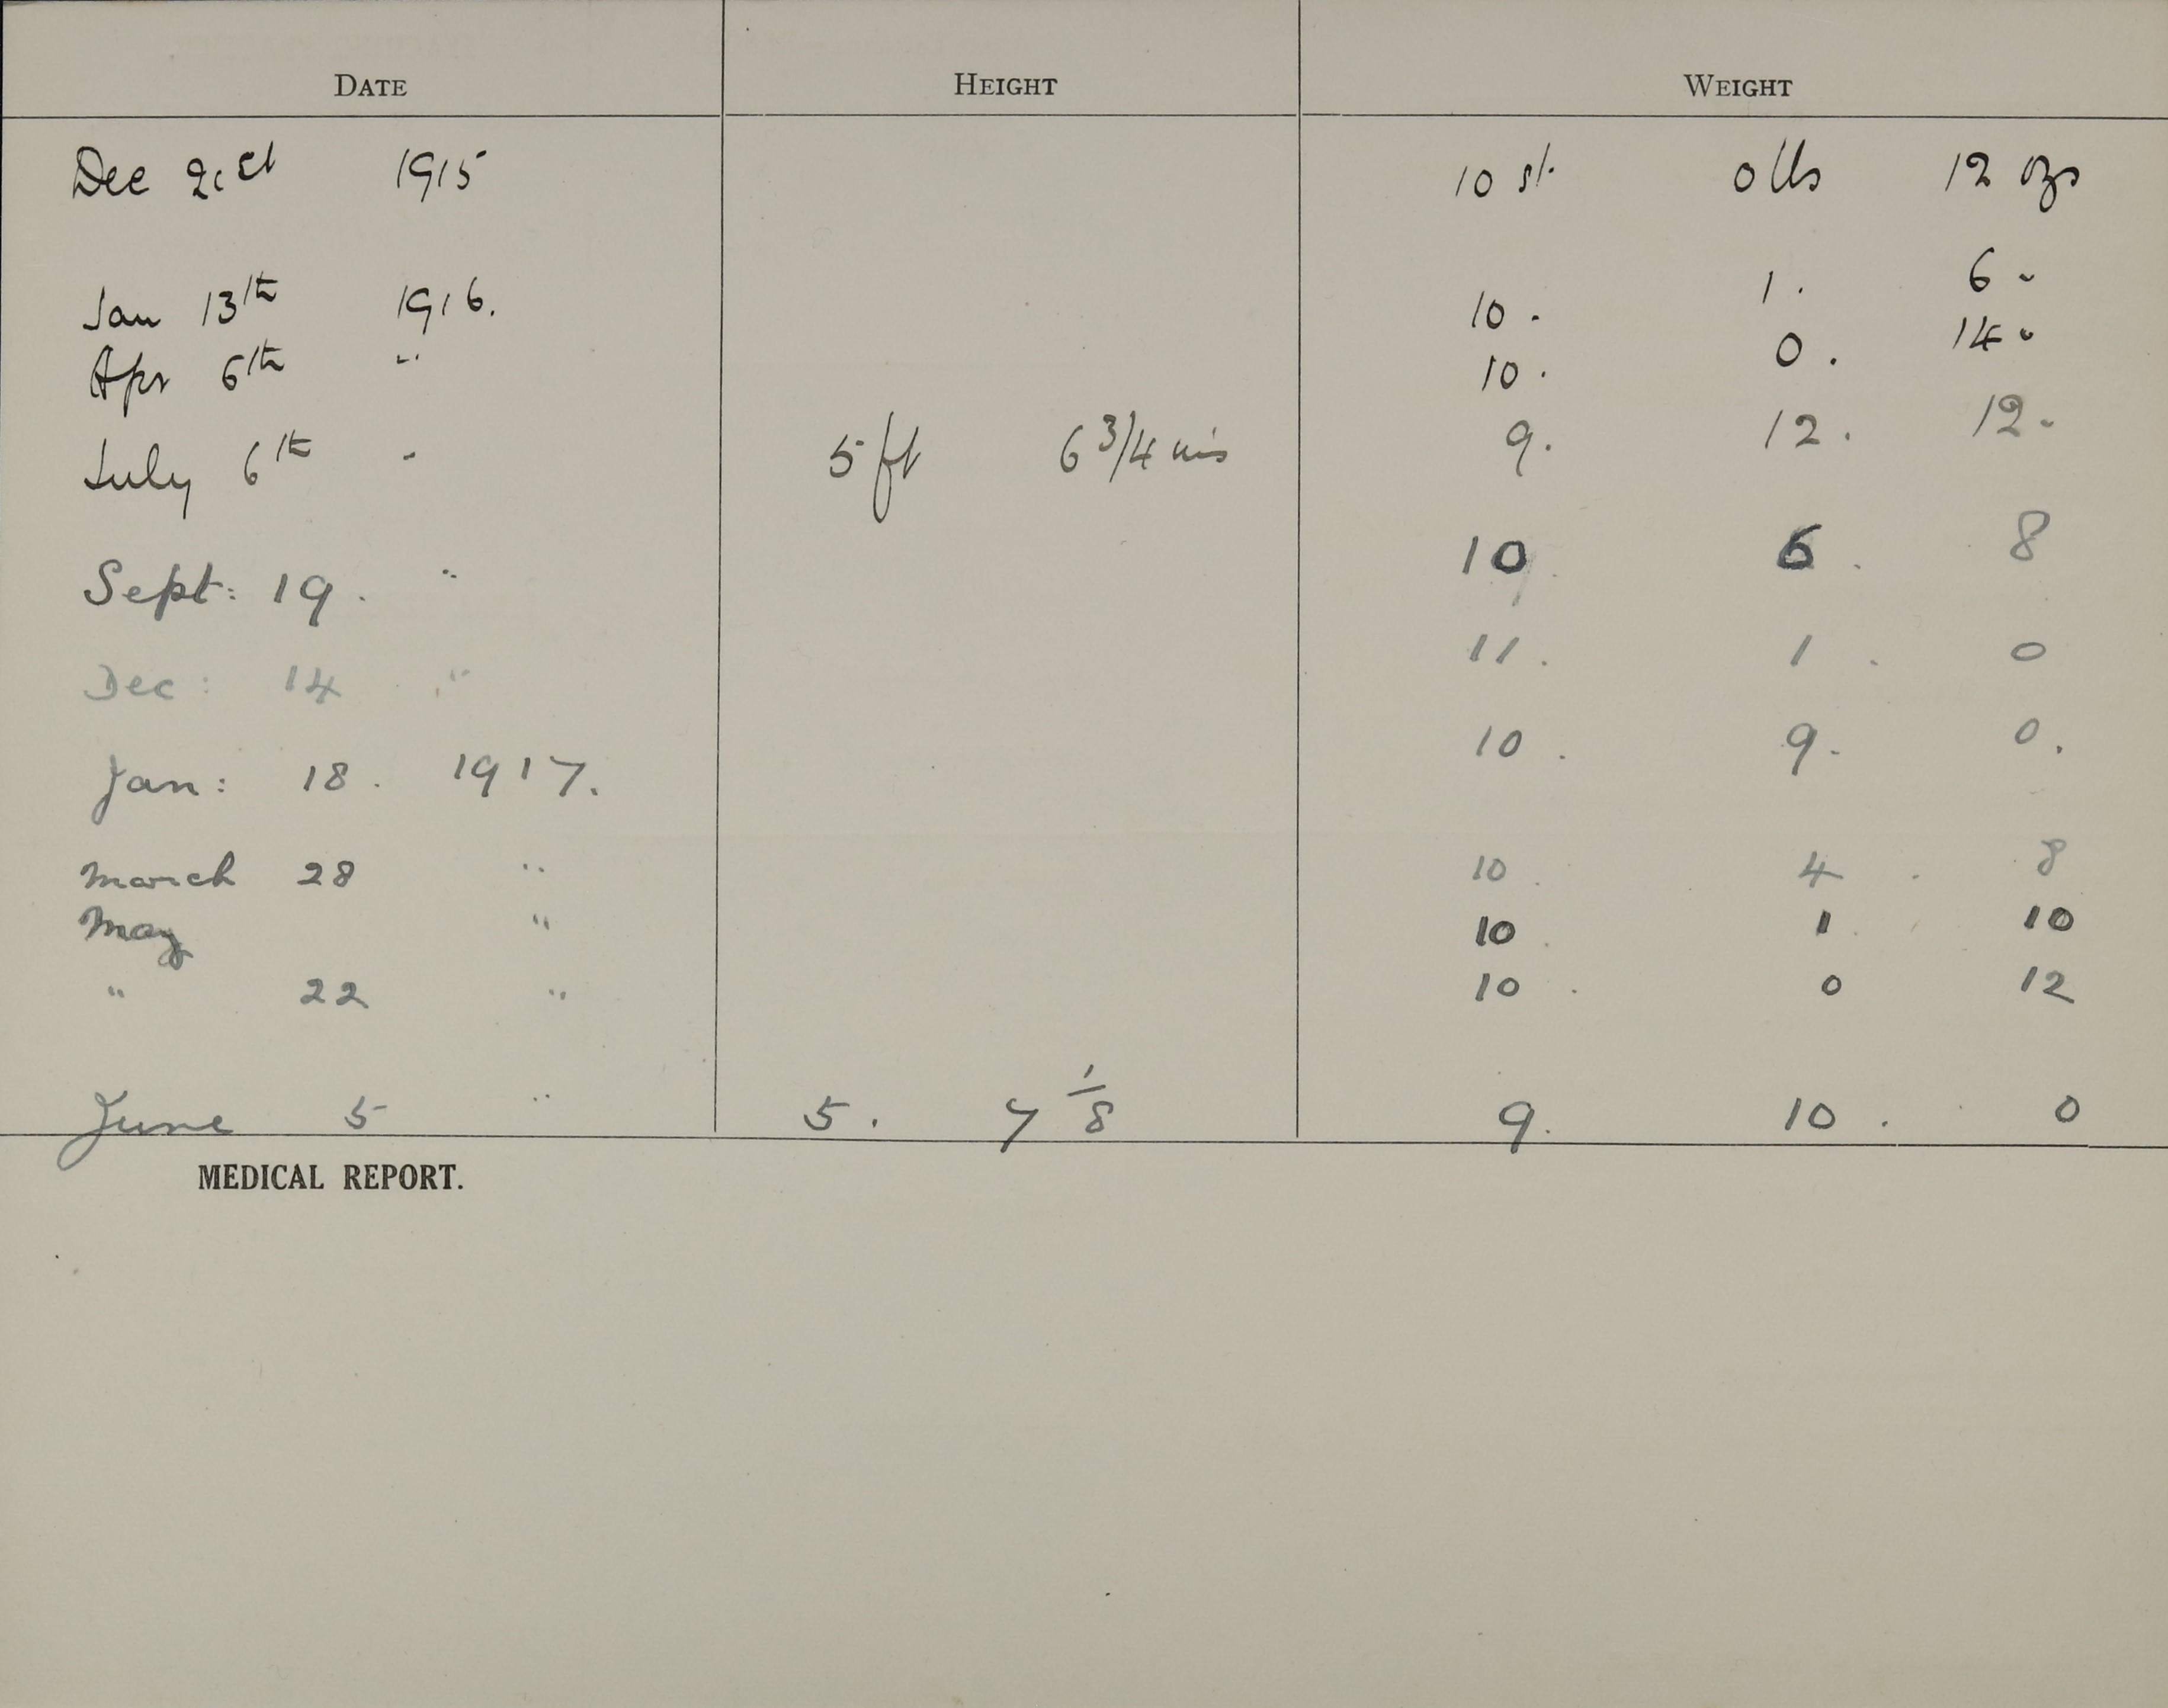 DATE HEIGHT WEIGHT
Dec 21st 1915 10 st. 0 lbs 12 ozs
Jan 13th 1916. 10. 1. 6 "
Apr 6th " 10. 0. 14 "
July 6th " 5 ft 6 3/4 ins 9. 12. 12 "
Sept: 19. " 10. 6. 8
Dec: 14 " 11. 1. 0
Jan: 18. 1917. 10. 9. 0.
March 28 " 10. 4. 8
May " 10. 1. 10
" 22 " 10. 0 12
June 5 " 5. 7 1/8 9. 10. 0
MEDICAL REPORT.